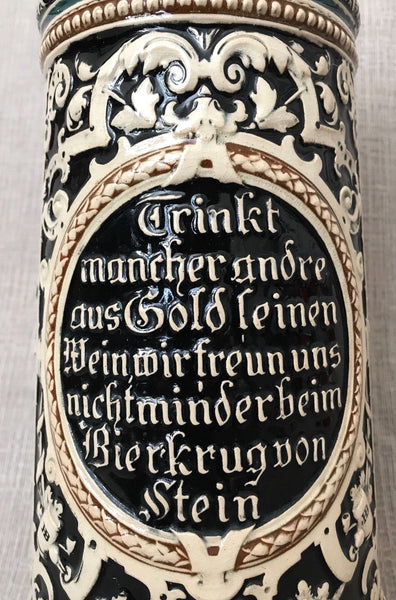 Trinkt
mancher andre
aus Gold seinen
Wein wir freun uns
nicht minder beim
Bierkrug von
Stein